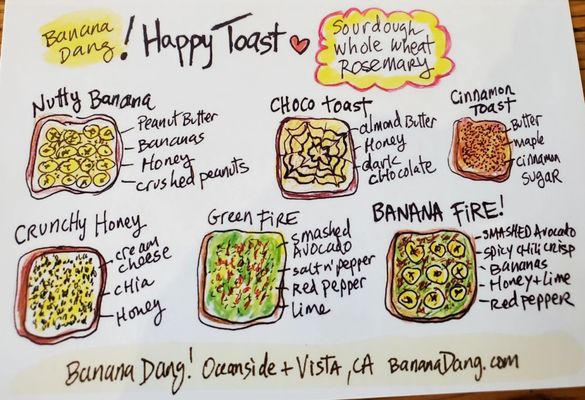 Banana Dang! Happy Toast
Sourdough
whole wheat
Rosemary
Nutty Banana
Peanut Butter
Bananas
Honey
crushed peanuts
CHOCO toast
almond Butter
Honey
dark chocolate
Cinnamon
Toast
Butter
maple
cinnamon
sugar
CRUNCHY HONEY
cream
cheese
CHIA
Honey
Green FIRE
smashed
AVOCADO
salt n' pepper
Red Pepper
Lime
BANANA FIRE!
SMASHED Avocado
SPICY CHILI CRISP
BANANAS
Honey + Lime
Red PEPPER
Banana Dang! Oceanside + VISTA, CA BananaDang.com